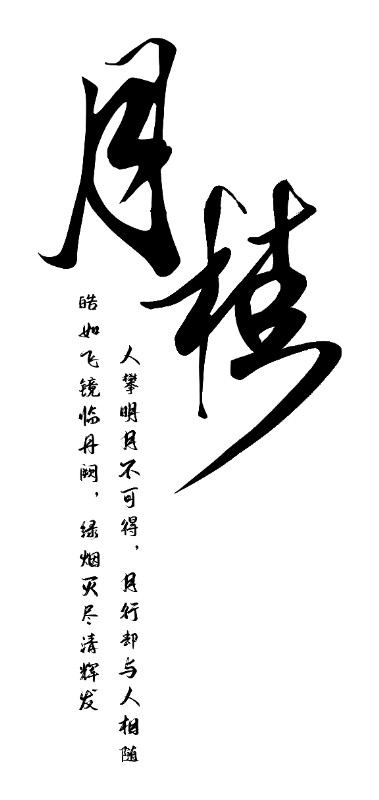 月桂
人攀明月不可得，月行却与人相随
皓如飞镜临丹阙，绿烟灭尽清辉发